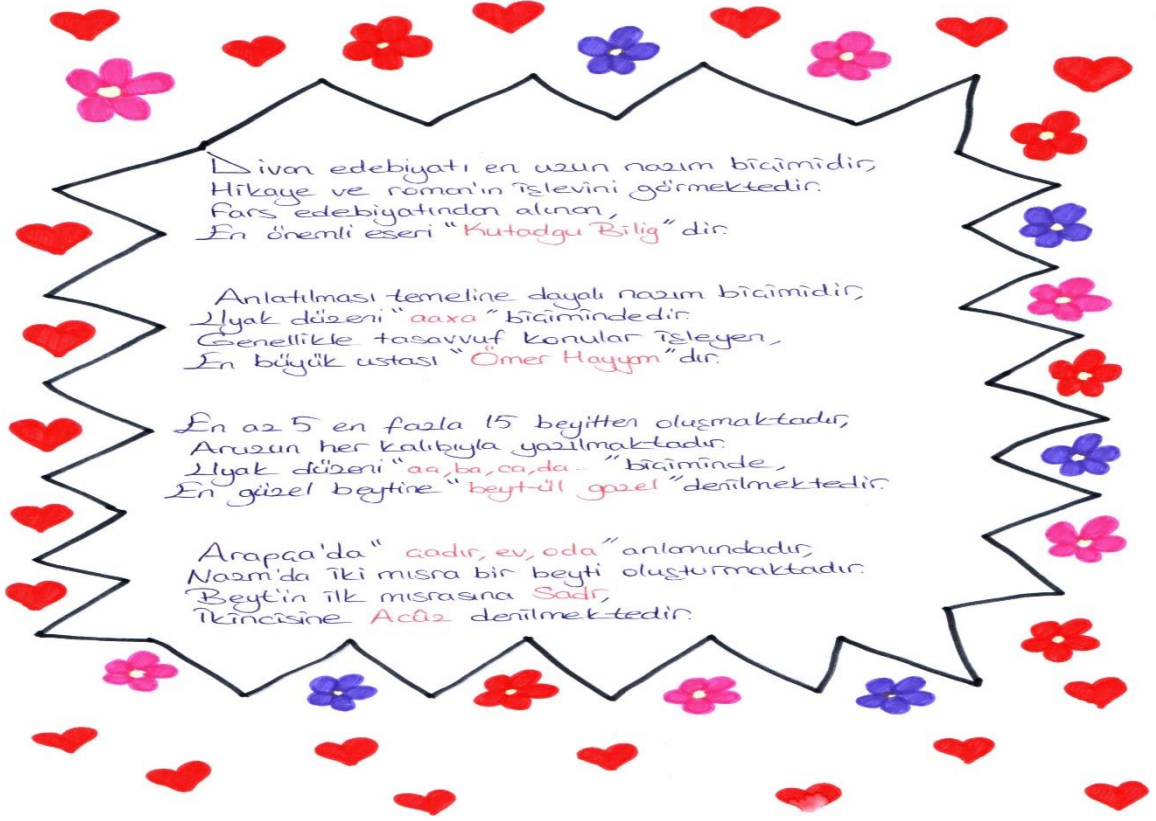 Divan edebiyatı en uzun nazım biçimidir,
Hikaye ve roman'ın işlevini görmektedir.
Fars edebiyatından alınan,
En önemli eseri "Kutadgu Bilig" dir.
Anlatılması temeline dayalı nazım biçimidir,
Uyak düzeni "aaxa" biçimindedir.
Genellikle tasavvuf konular işleyen,
En büyük ustası "Ömer Hayyam" dır.
En az 5 en fazla 15 beyitten oluşmaktadır,
Aruzun her kalıbıyla yazılmaktadır.
Uyak düzeni "aa,ba,ca,da.." biçiminde,
En güzel beytine "beyt-ül gazel" denilmektedir.
Arapça'da "çadır, ev, oda" anlamındadır,
Nazm'da iki mısra bir beyti oluşturmaktadır.
Beyt'in ilk mısrasına Sadr,
İkincisine Acûz denilmektedir.